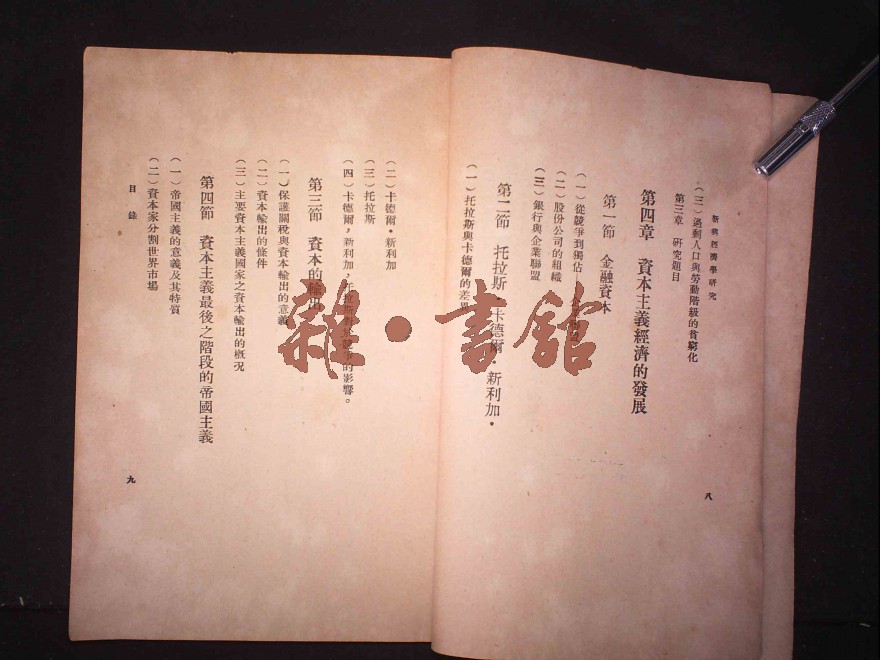 新興經濟學研究
(三)過剩人口與勞動階級的貧窮化
第三章 研究題目
第四章 資本主義經濟的發展
第一節 金融資本
(一)從競爭到獨佔
(二)股份公司的組織
(三)銀行與企業聯盟
第二節 托拉斯·卡德爾·新利加·
(一)托拉斯與卡德爾的差異
八
(二)卡德爾·新利加
(三)托拉斯
(四)卡德爾,新利加,托拉斯的影響。
第三節 資本的輸出
(一)保護關稅與資本輸出的意義
(二)資本輸出的條件
(三)主要資本主義國家之資本輸出的概況
第四節 資本主義最後之階段的帝國主義
(一)帝國主義的意義及其特質
(二)資本家分割世界市場
目錄
九
雜·書館